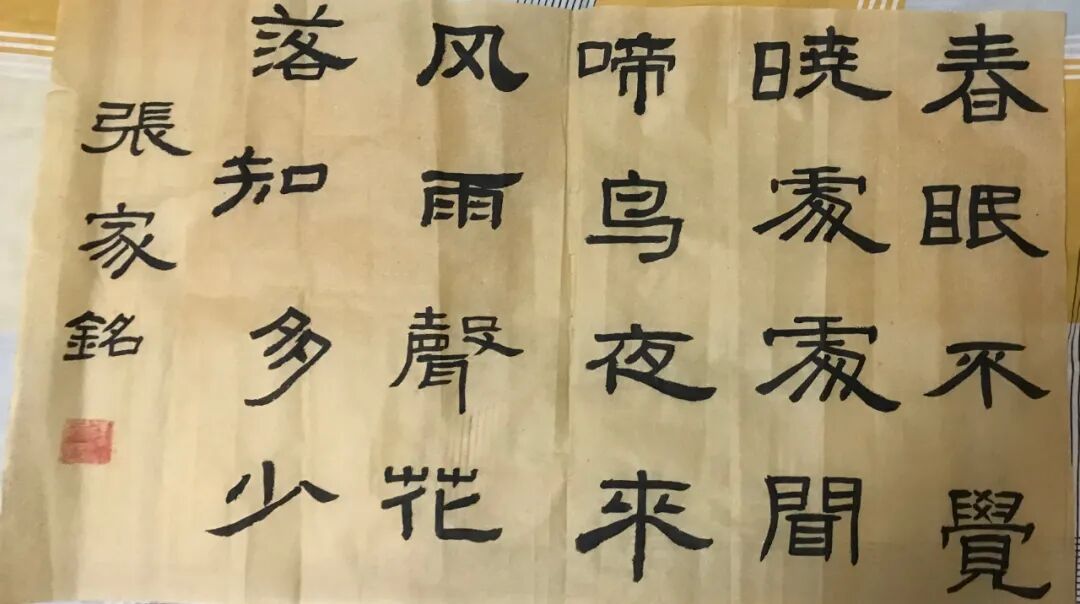 春眠不覺
曉處處聞
啼鸟夜來
风雨聲花
落知多少
張家銘